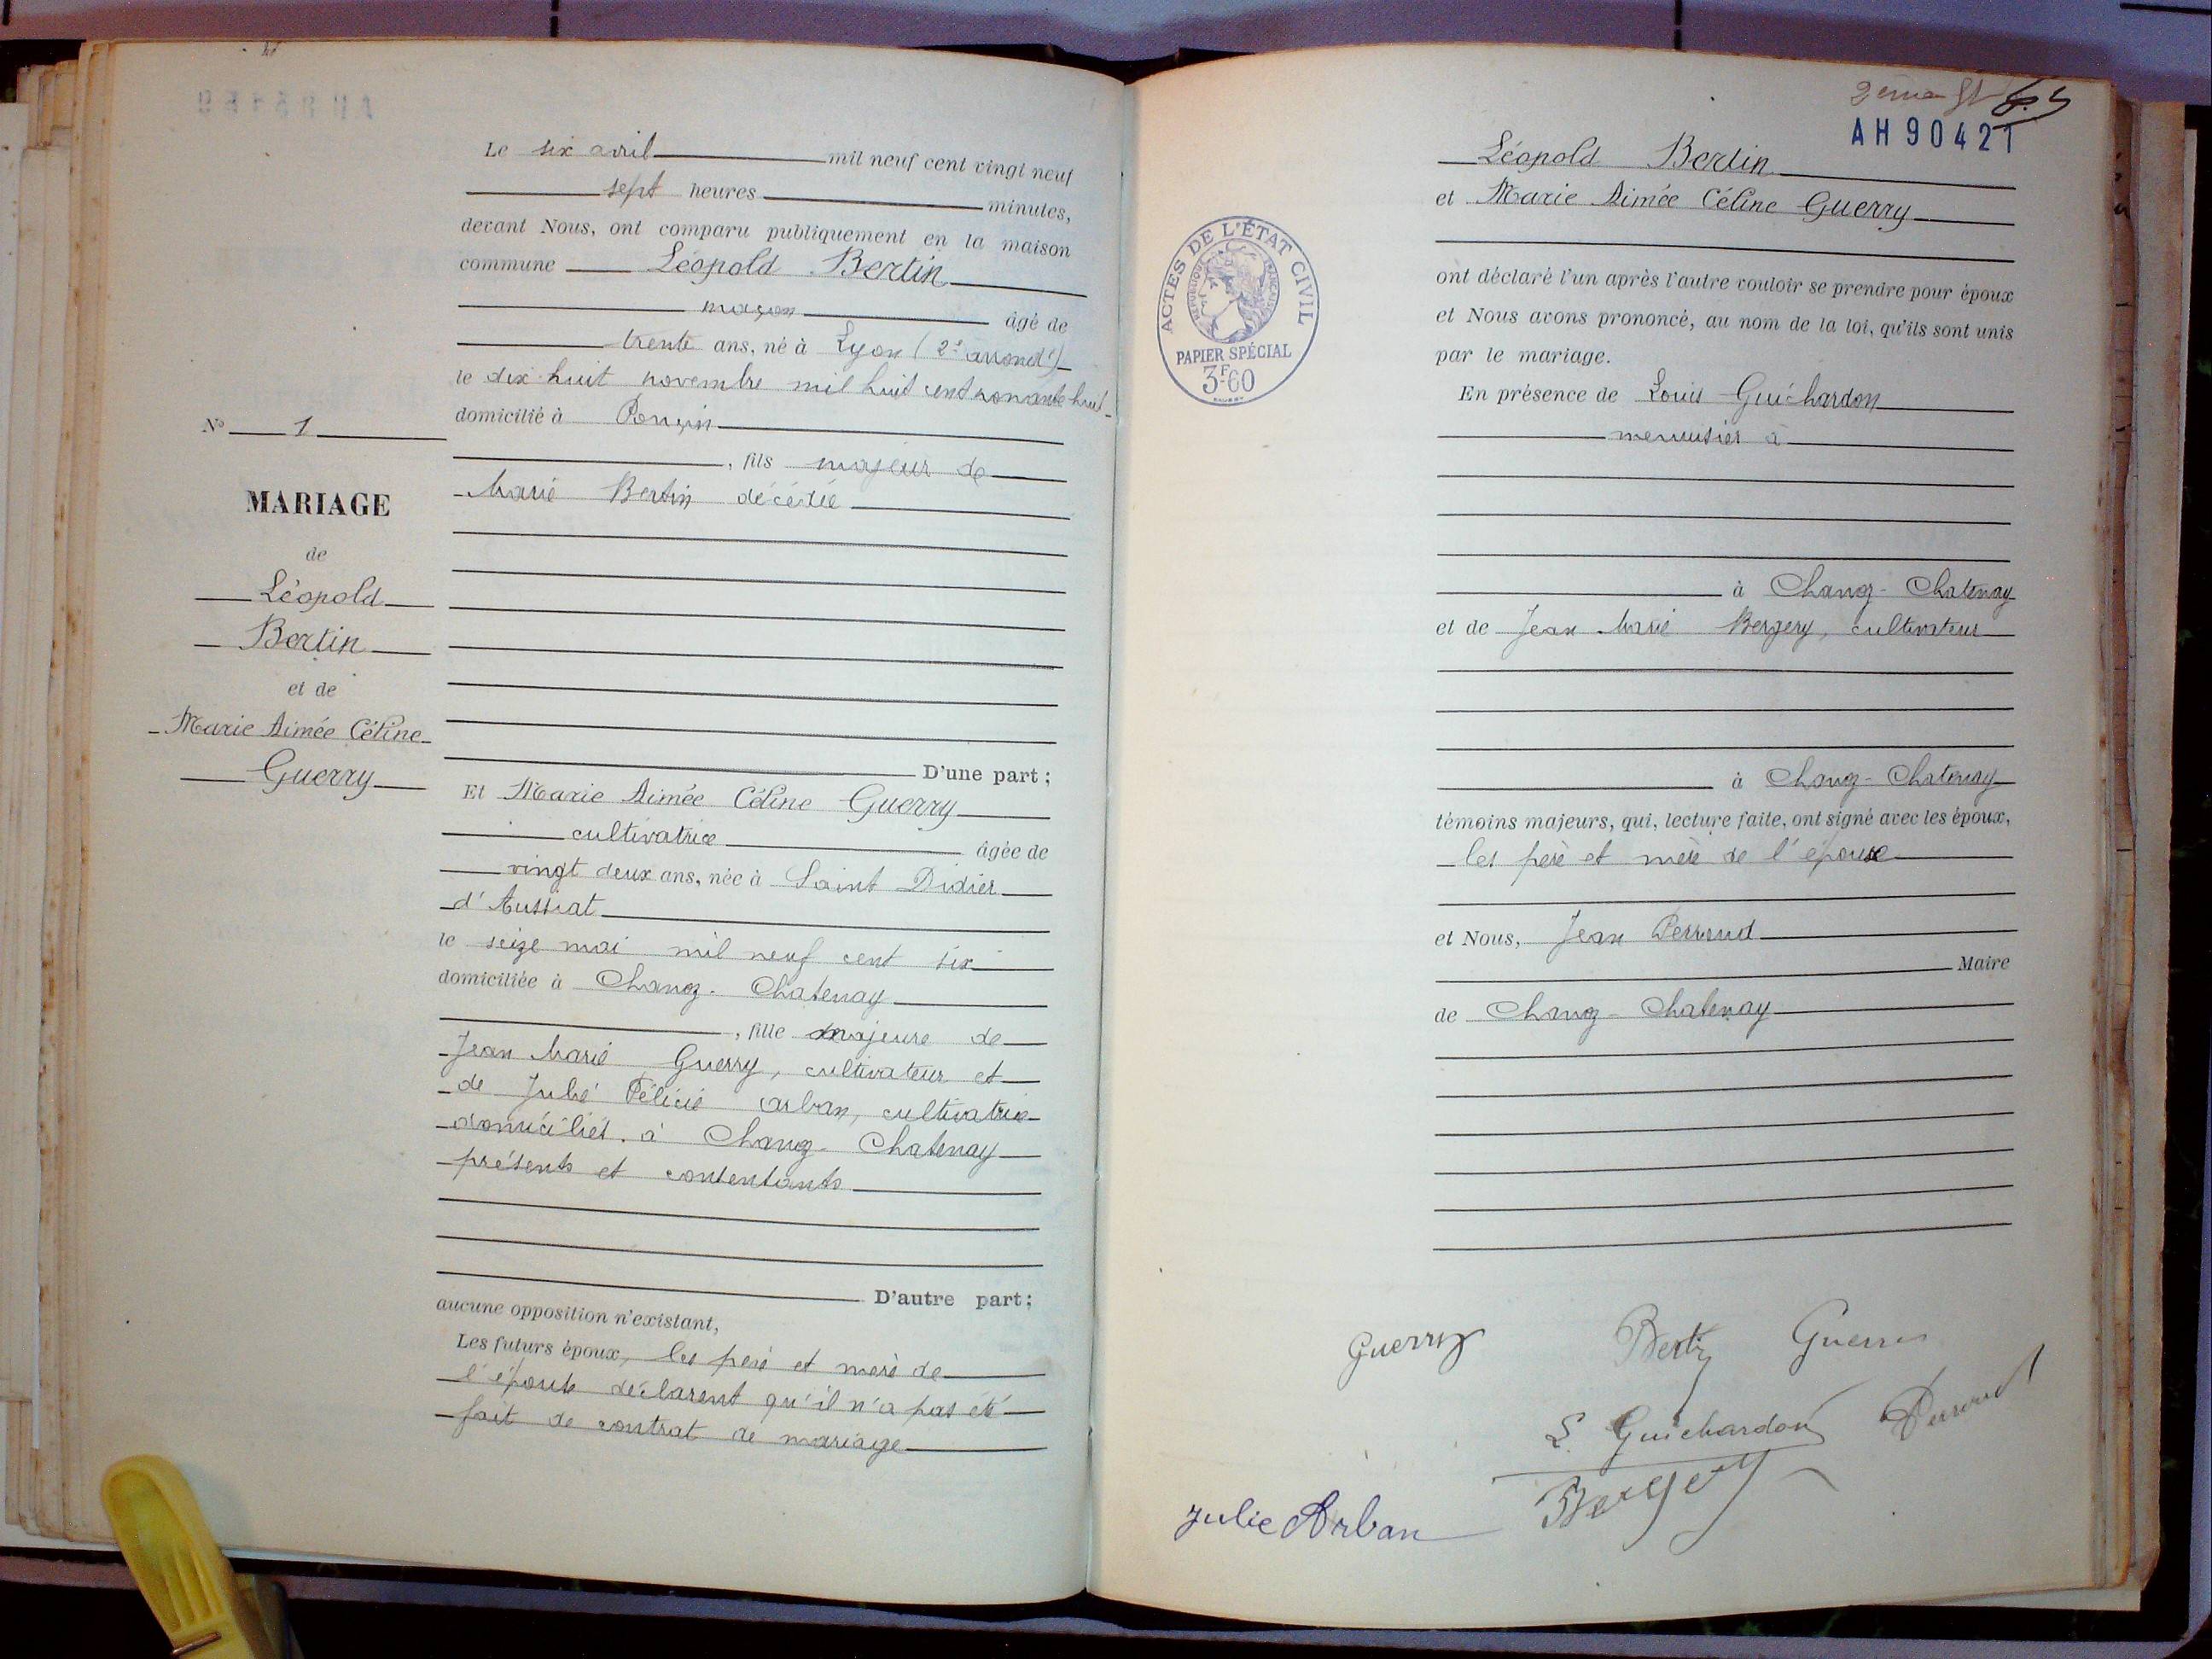 Le six avril mil neuf cent vingt neuf
sept heures minutes,
devant Nous, ont comparu publiquement en la maison
commune Léopold Bertin
maçon âgé de
trente ans, né à Lyon (2e arrondt)
le dix huit novembre mil huit cent nonante huit
domicilié à Poncin
, fils majeur de
Marie Bertin décédée
D'une part ;
Et Marie Aimée Céline Guerry
cultivatrice âgée de
vingt deux ans, née à Saint Didier
d'Aussiat
le seize mai mil neuf cent six
domiciliée à Chanoz-Chatenay
, fille majeure de
Jean Marie Guerry, cultivateur et
de Julie Félicie Arban, cultivatrice
domiciliés à Chanoz-Chatenay
présents et consentants
D'autre part ;
aucune opposition n'existant,
Les futurs époux, les père et mère de
l'épouse déclarent qu'il n'a pas été
fait de contrat de mariage
No 1
MARIAGE
de
Léopold
Bertin
et de
Marie Aimée Céline
Guerry
2ème
AH90421
Léopold Bertin
et Marie Aimée Céline Guerry
ont déclaré l'un après l'autre vouloir se prendre pour époux
et Nous avons prononcé, au nom de la loi, qu'ils sont unis
par le mariage.
En présence de Louis Guichardon
menuisier à
à Chanoz-Chatenay
et de Jean Marie Bergery, cultivateur
à Chanoz-Chatenay
témoins majeurs, qui, lecture faite, ont signé avec les époux,
les père et mère de l'épouse
et Nous, Jean Perraud
Maire
de Chanoz-Chatenay
ACTES DE L'ÉTAT CIVIL
RÉPUBLIQUE FRANÇAISE
PAPIER SPÉCIAL
3F60
Guerry Bertin Guerry
L. Guichardon Perraud
Bergery
Julie Arban